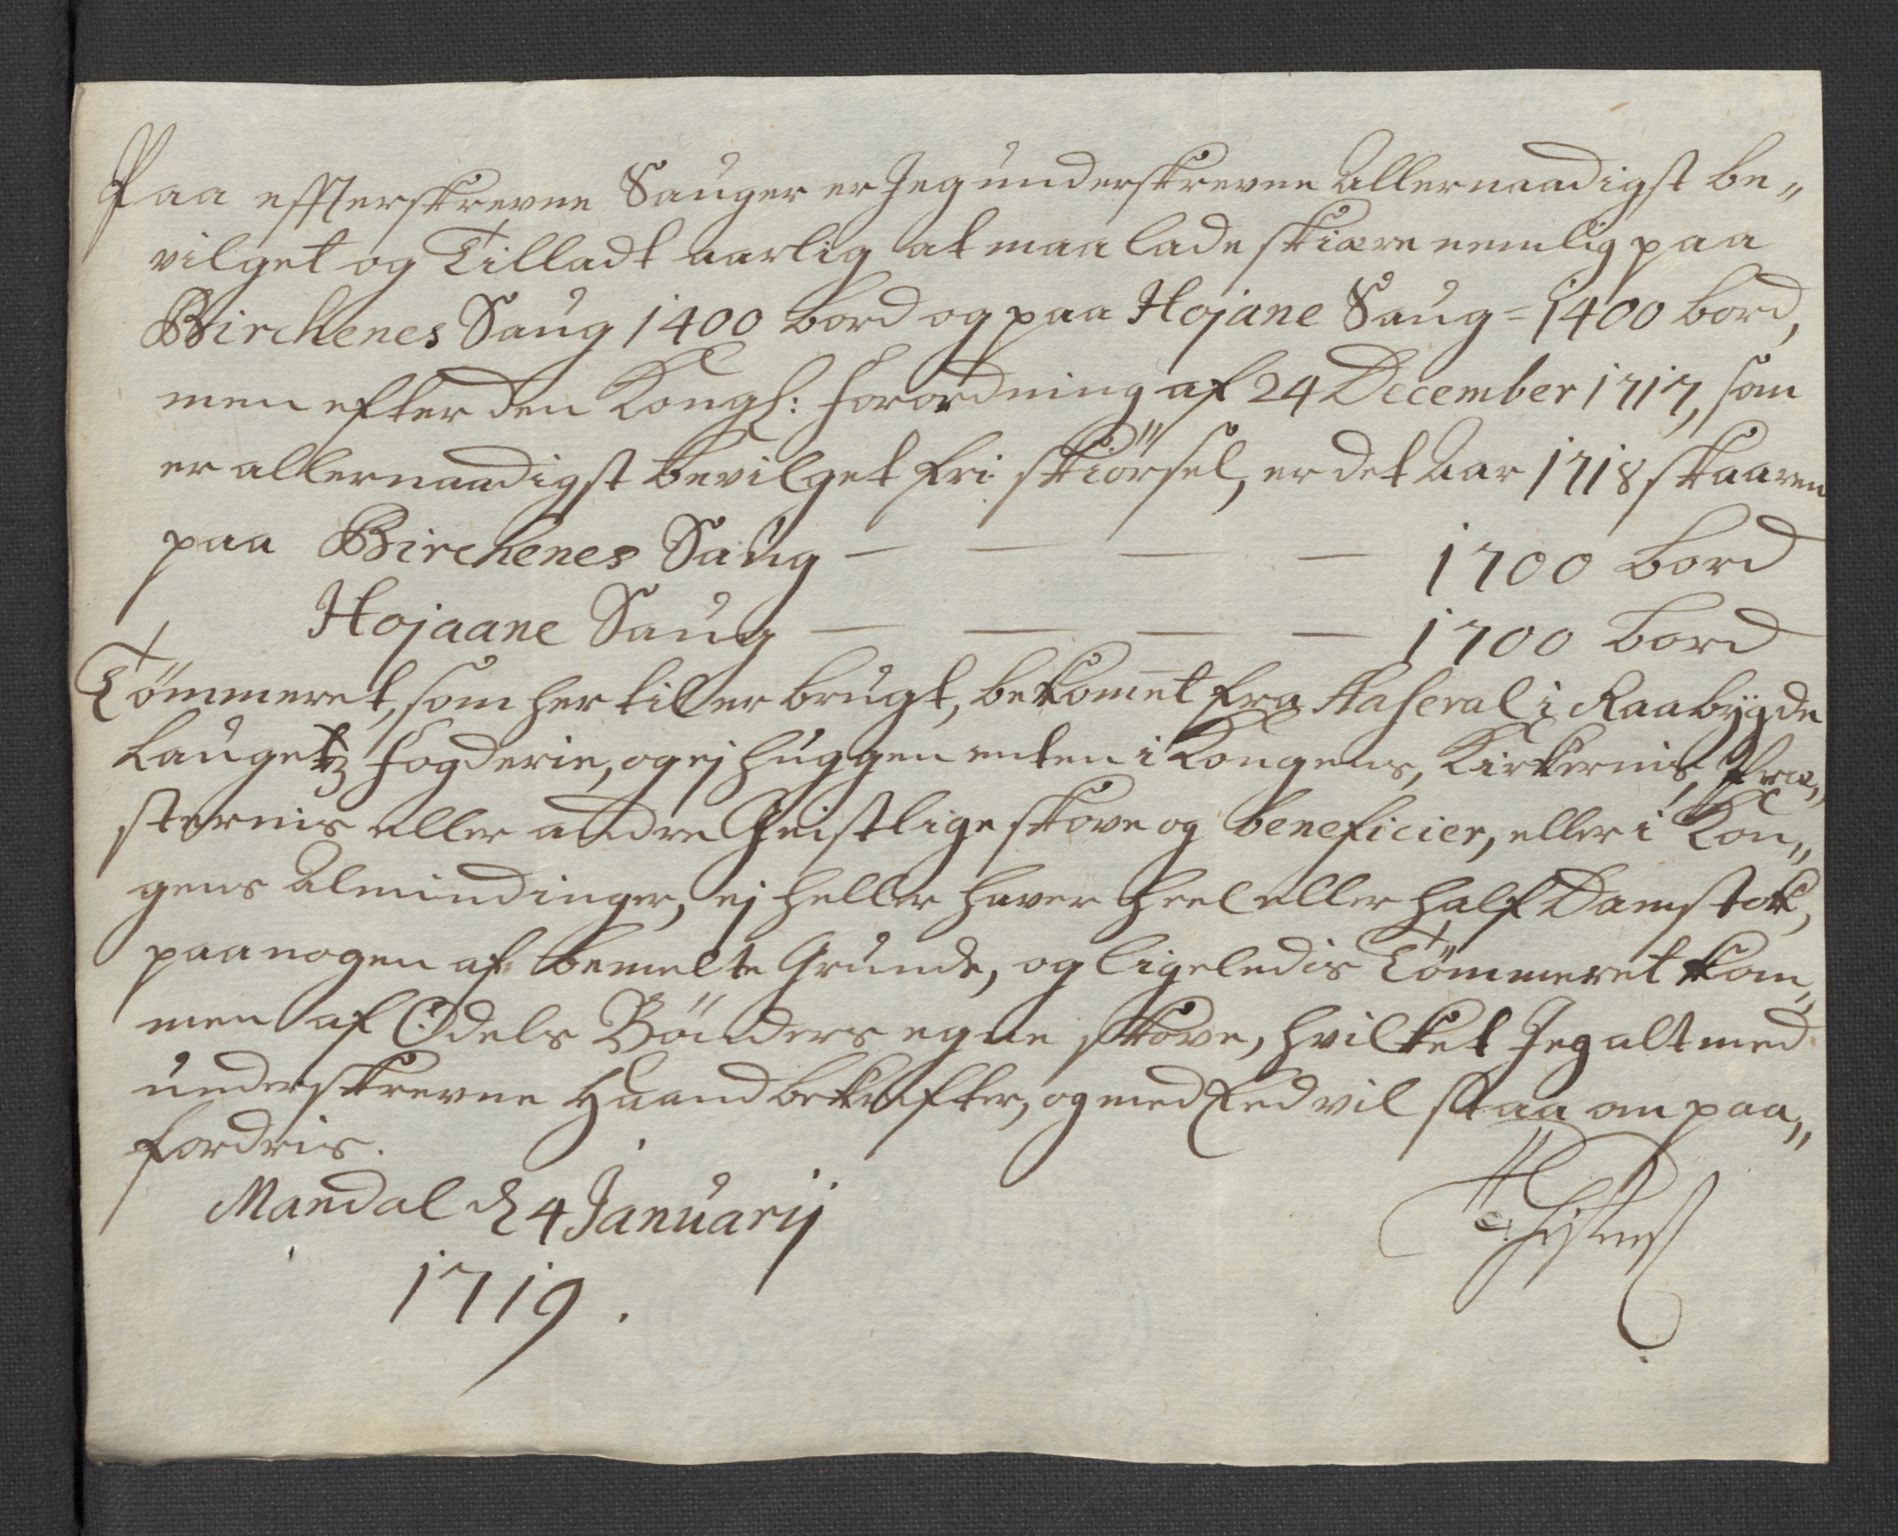 Paa effterskrevne Sauger er Jeg underskrevne Allernaadigst be„
vilget og Tilladt aarlig at maa lade skiære nemlig paa
Birckenes Saug 1400 bord og paa Hojane Saug = 1400 bord,
men efter den Kongl: forordning af 24 December 1717, som
er allernaadigst bevilget fri skiörsel, er det Aar 1718 skaaren
paa Birckenes Saug — — — — 1700 bord
Hojaane Saug — — — — 1700 bord
Tömmeret, som her til er brugt, bekommet fra Aaseral i Raabÿgde
Laugetz fogderie, og ej huggen enten i Kongens, Kirkernis, Præ„
sternis eller andre Geistlige skove og beneficier, eller i Kon„
gens Almindinger, ej heller haver heel eller half Damstok,
paa nogen af bemelte Grunde, og ligeledis Tömmeret kom„
men af Odels Bönders egne skove, hvilket Jeg alt med
underskrevne Haand bekrefter, og med Eed vil staa om paa„
fordris.
Mandal d 4 Januarij
1719.